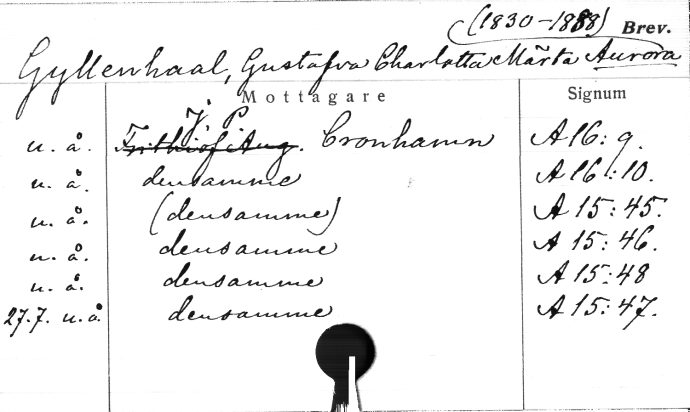 (1830-1888) Brev.
Gyllenhaal, Gustafva Charlotta Märta Aurora
Mottagare Signum
J. P.
u. å. Frithiof Aug. Cronhamn A 16: 9.
u. å. densamme A 16:10.
u. å. (densamme) A 15: 45.
u. å. densamme A 15: 46.
u. å. densamme A 15:48
27.7. u. å. densamme A 15: 47.